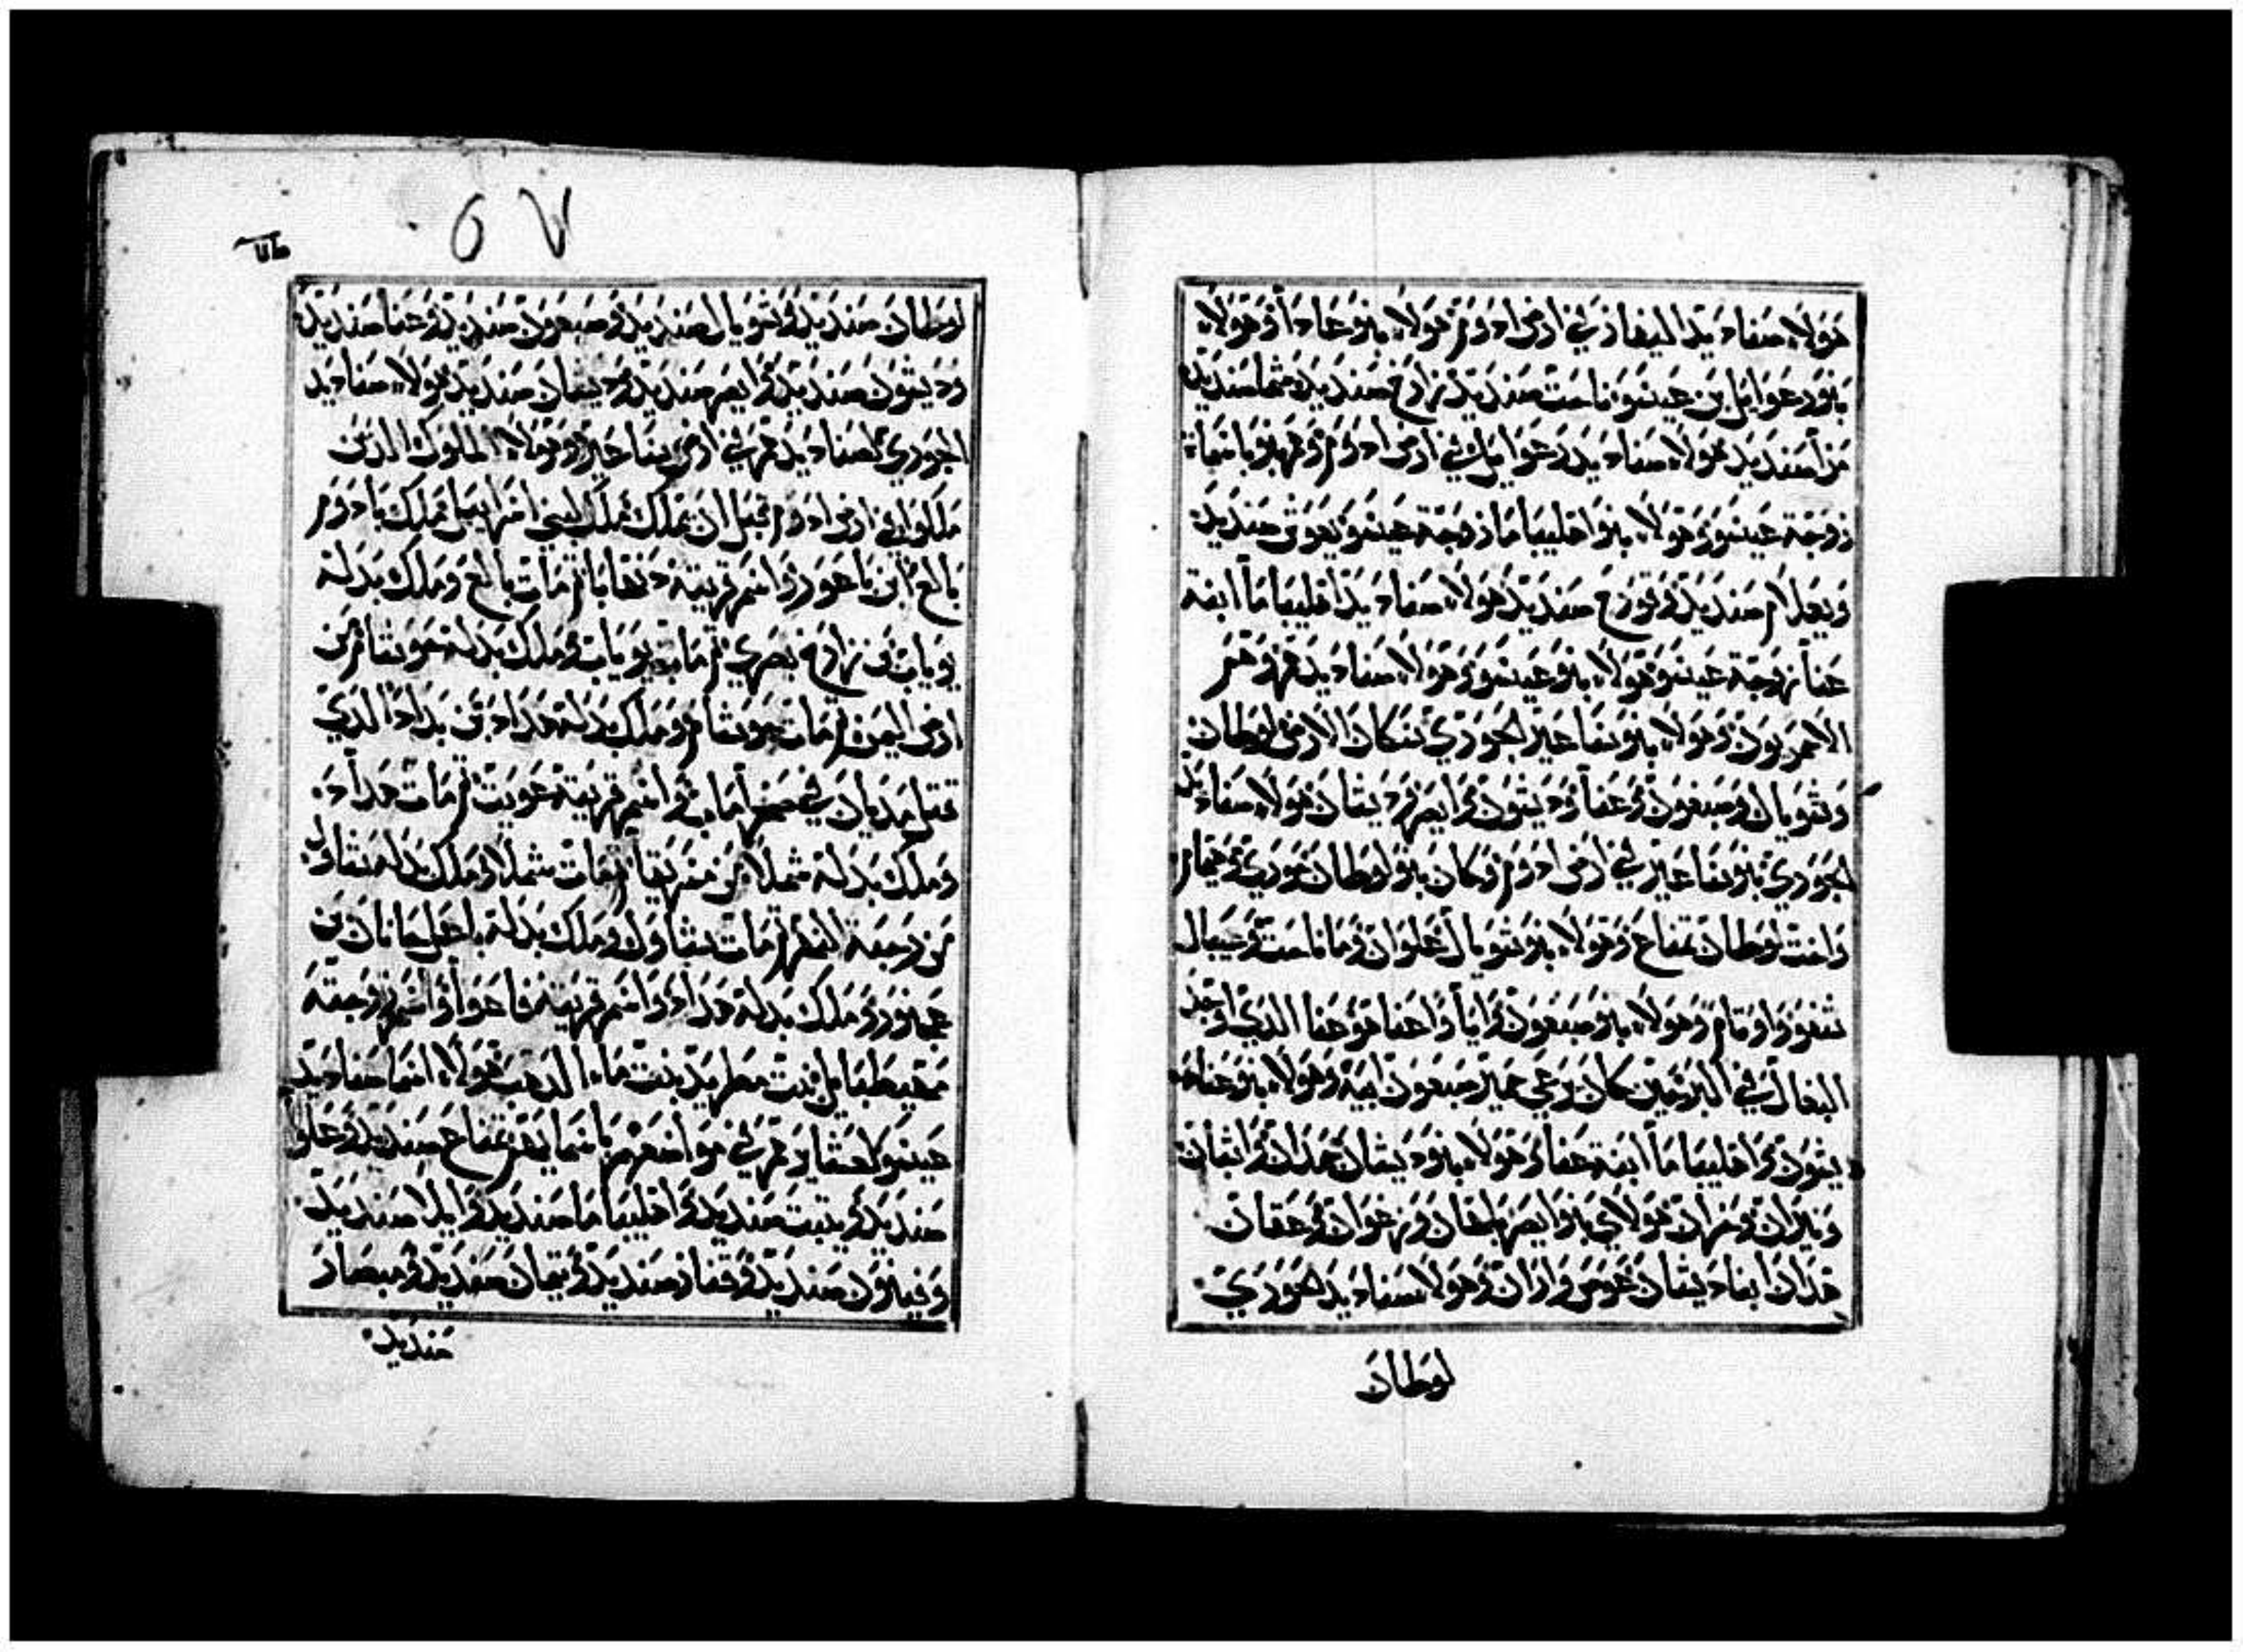 هَولاء صنادَيد اليفاز في ارض ادَوم هَولاء بنو عادا وَهولاء
بنو رَعوايل بن عيسَو ناحت صنديد زارَح صنديد شما صنديد
مزا صنديد هَولاء صناديد رَعوايل في ارض ادَوم وَهم بنو باسماة
زوجة عيسَو وَهولاء بنو اهليباما زوجة عيسَو يعوش صنديد
وَيعلام صنديد وَقورَح صنديد هَولاء صناديد اهليباما ابنة
عنا زوجة عيسَو هَولاء بنو عيسَو وَهولاء صناديدهم وهم
الاحمريون وَهولاء بنو ساعير الحوري سكان الارض لوطان
وَشوبال وصبعون وعنا وَديشون وَايصر وَديشان هولاء صناديد
الحوري بنو ساعير في ارض ادَوم وَكان بنو لوطان حوري وَهيمام
وَاخت لوطان تمناع وَهولاء بنو شوبال علوان وَماناحت وَعيبال
شفو وَاونام وَهولاء بنو صبعون وَايا وَاعنا هو عنا الذي وَجد
البغال في البر حين كان يرعى حمير صبعون ابيه وَهولاء بنو عناه
ديشون وَاهليباما ابنة عنا وَهولاء بنو ديشان حمدان وَاشبان
وَيثران وَكران هولاي بنو ايصر بلهان وَزعوان وَعقان
هذان ابنا ديشان عوص وَاران وَهولاء صناديد الحوري
لوطان
٥٧
لوطان صنديد وَشوبال صنديد وَصبعون صنديد وَعنا صنديد
وَديشون صنديد وَايصر صنديد وَديشان صنديد هَولاء صناديد
الحوري لصناديدهم في ارض ساعير وَهولاء الملوك الذين
ملكوا في ارض ادَوم قبل ان يملك ملك لبني اسراييل ملك بادَوم
بالع ابن باعور وَاسم قريته دنهابا ثم مات بالع وَملك بدله
يوباب بن زارَح بصري ثم مات يوباب وَملك بدله حوشام من
ارض اليمن ثم مات حوشام وَملك بدله هداد بن بداد الذي
قتل مديان في ... مَاب وَاسم قريته عويت ثم مات هداد
وَملك بدله شملا من مسريقا ثم مات شملا وَملك بدله شاوَل
من رحبة النهر ثم مات شاوَل وَملك بدله باعل حانان بن
عكبور وَملك بدله هداد وَاسم قريته فاعوا وَاسم زوجته
مهيطبايل بنت مطريد بنت ماء الذهب هولاء اسما صناديد
عيسو لعشايرهم في مواضعهم باسمايهم تمناع صنديد وَعلوا
صنديد وَيتيت صنديد وَاهليباما صنديد وَايلا صنديد
وَفينون صنديد وَقناز صنديد وَتيمان صنديد وَمبصار
صنديد